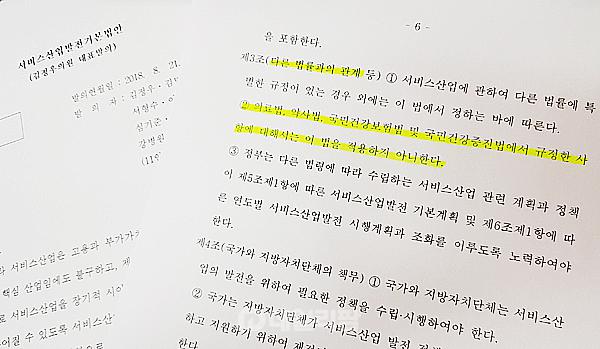 서비스산업발전기본법안
(김정우의원 대표발의)
발의연월일 : 2018. 8. 21.
발 의 자 : 김정우ㆍ김
서형수ㆍ
심기준ㆍ
강병원
(11
서비스산업은 고용과 부가가
핵심 산업임에도 불구하고, 제
로 서비스산업을 장기적 시
어질 수 있도록 서비스산
- 6 -
을 포함한다.
제3조(다른 법률과의 관계 등) ① 서비스산업에 관하여 다른 법률에 특
별한 규정이 있는 경우 외에는 이 법에서 정하는 바에 따른다.
② 의료법, 약사법, 국민건강보험법 및 국민건강증진법에서 규정한 사
항에 대해서는 이 법을 적용하지 아니한다.
③ 정부는 다른 법령에 따라 수립하는 서비스산업 관련 계획과 정책
이 제5조제1항에 따른 서비스산업발전 기본계획 및 제6조제1항에 따
른 연도별 서비스산업발전 시행계획과 조화를 이루도록 노력하여야
한다.
제4조(국가와 지방자치단체의 책무) ① 국가와 지방자치단체는 서비스산
업의 발전을 위하여 필요한 정책을 수립·시행하여야 한다.
② 국가는 지방자치단체가 서비스산업 발전
하고 지원하기 위하여